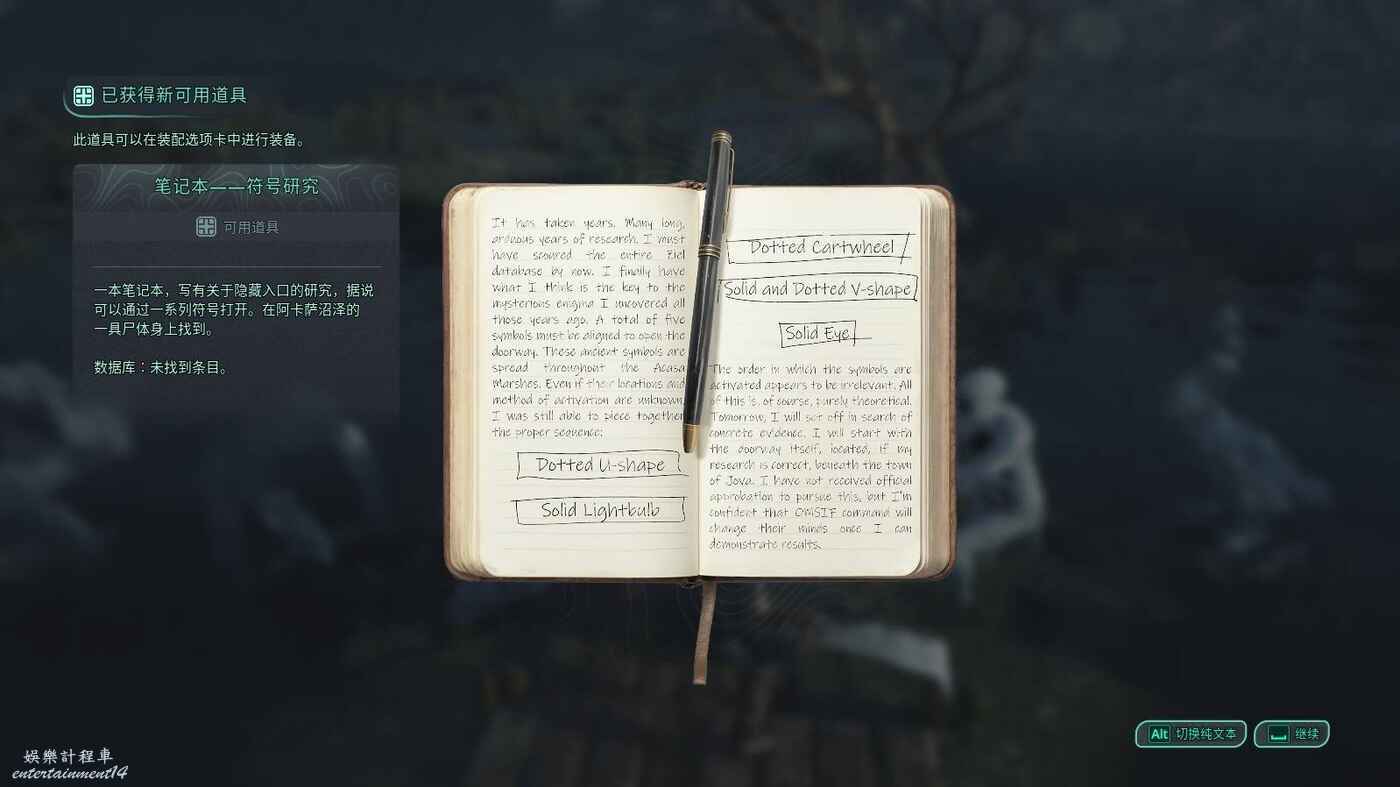 已获得新可用道具
此道具可以在装配选项卡中进行装备。
笔记本——符号研究
可用道具
一本笔记本，写有关于隐藏入口的研究，据说
可以通过一系列符号打开。在阿卡萨沼泽的
一具尸体身上找到。
数据库：未找到条目。
It has taken years. Many long,
arduous years of research. I must
have scoured the entire Eiel
database by now. I finally have
what I think is the key to the
mysterious enigma I uncovered all
those years ago. A total of five
symbols must be aligned to open the
doorway. These ancient symbols are
spread throughout the Acasa
Marshes. Even if their locations and
method of activation are unknown,
I was still able to piece together
the proper sequence:
Dotted U-shape
Solid Lightbulb
Dotted Cartwheel
Solid and Dotted V-shape
Solid Eye
The order in which the symbols are
activated appears to be irrelevant. All
of this is, of course, purely theoretical.
Tomorrow, I will set off in search of
concrete evidence. I will start with
the doorway itself, located, if my
research is correct, beneath the town
of Jova. I have not received official
approbation to pursue this, but I'm
confident that OMSIF command will
change their minds once I can
demonstrate results.
Alt 切换纯文本
继续
娱樂計程車
entertainment14